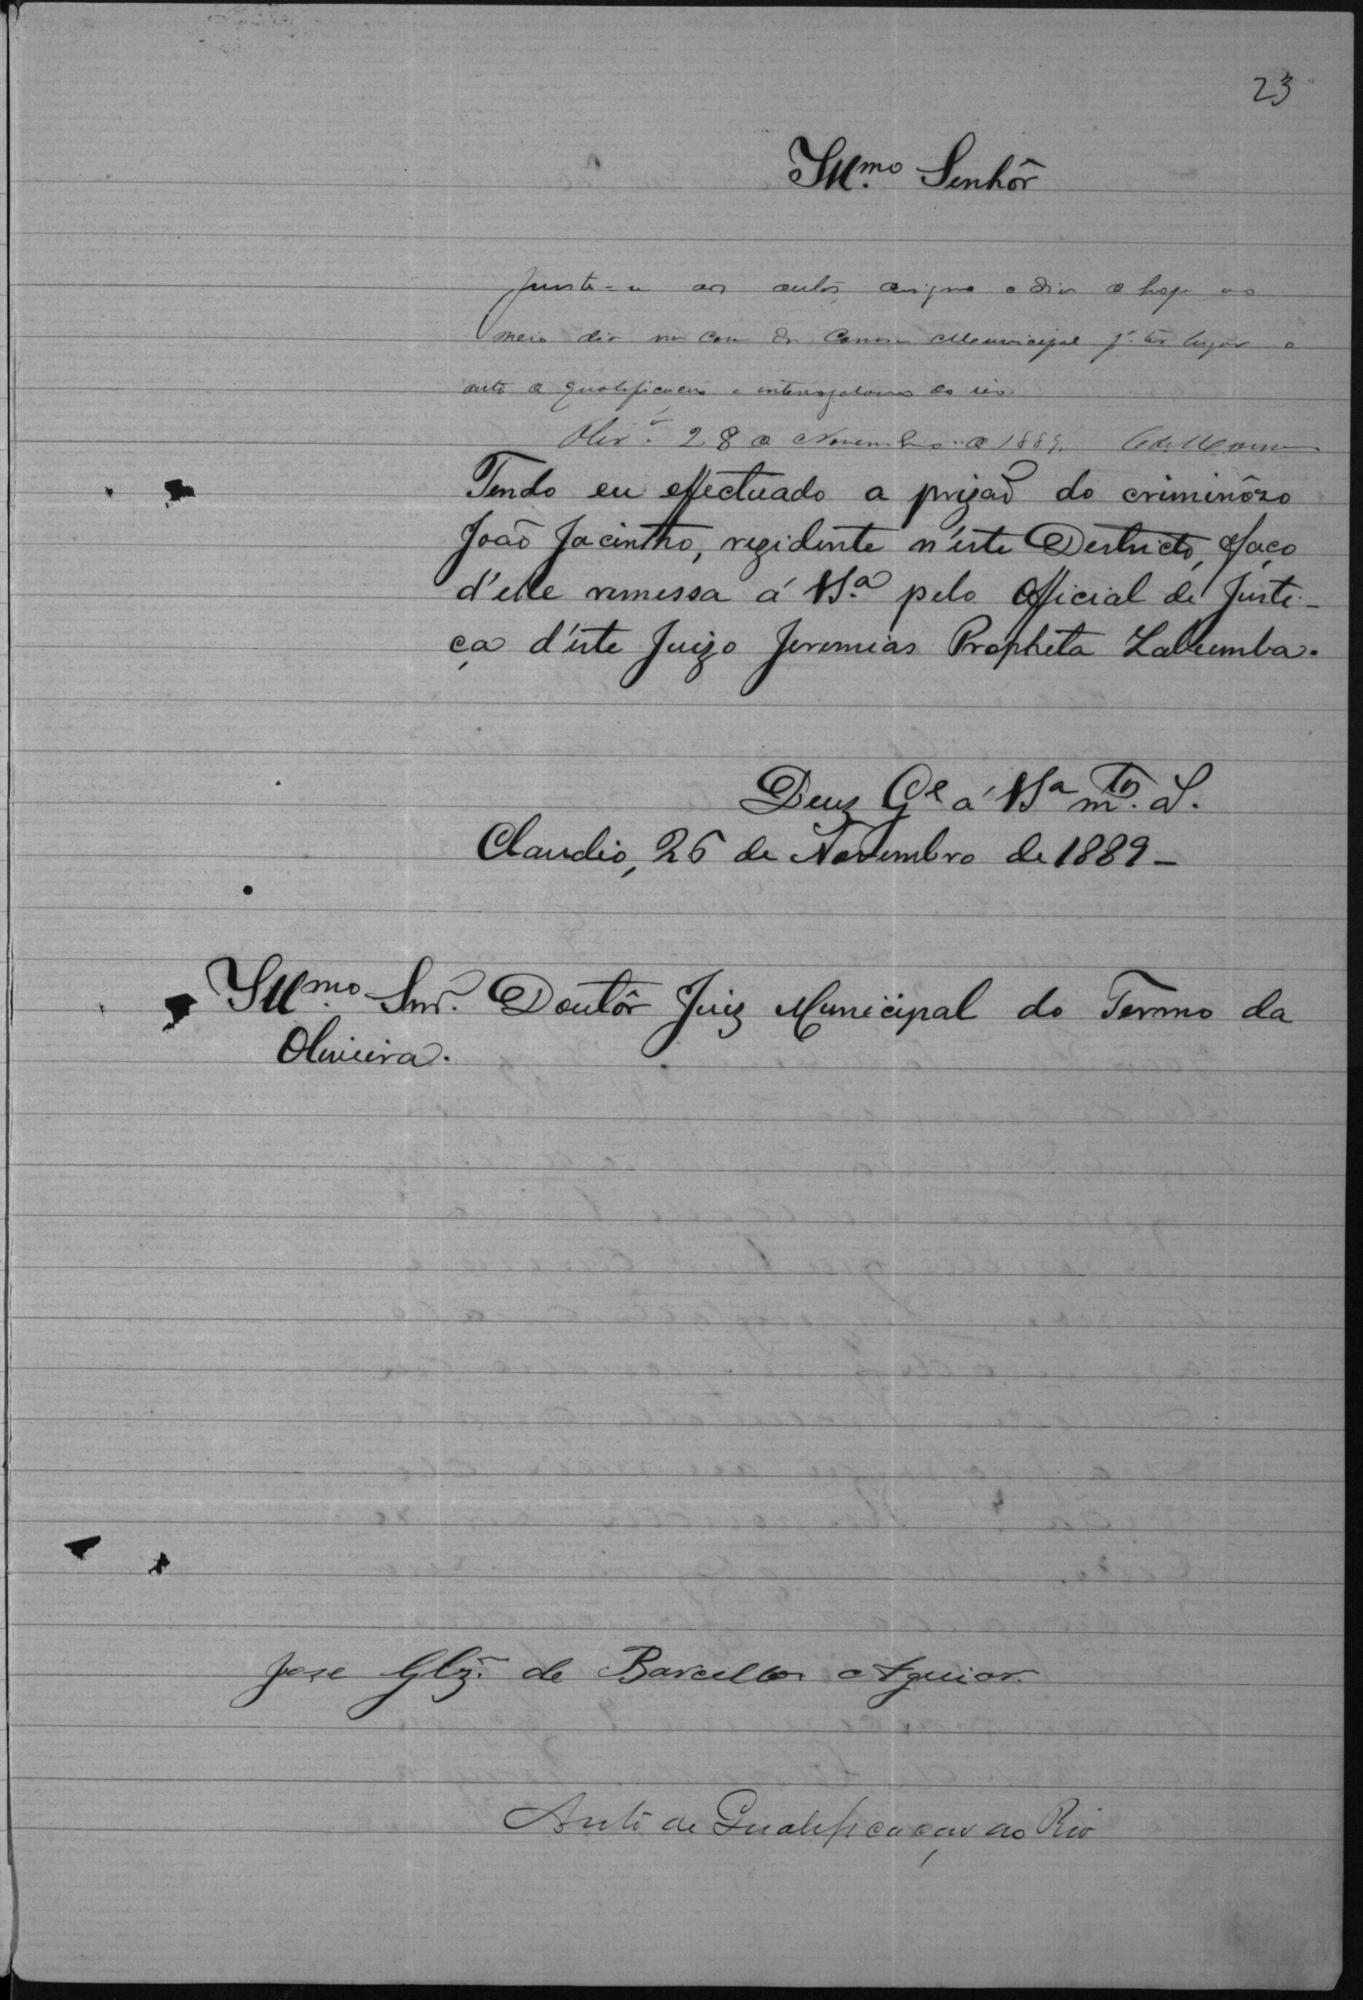 23
Illmo. Senhôr
Junte-se aos autos, assigno o dia de hoje ao
meio dia na casa da Camara Municipal pa. ter lugar o
auto de qualificação e interrogatorio do réo.
Olivra. 28 de Novembro de 1889.
Tendo eu effectuado a prizão do criminôzo
João Jacintho, rezidente n'éste Destricto, faço
d'elle remessa á VSa. pelo Official de Justi-
ça d'éste Juizo Jeremias Propheta Zabumba.
Deus Ge. a VSa. mtos. as.
Claudio, 26 de Novembro de 1889 -
Illmo. Snr. Doutôr Juiz Municipal do Termo da
Oliveira.
Jose Glz. de Barcellos Aguiar
Auto de Qualificação ao Réo